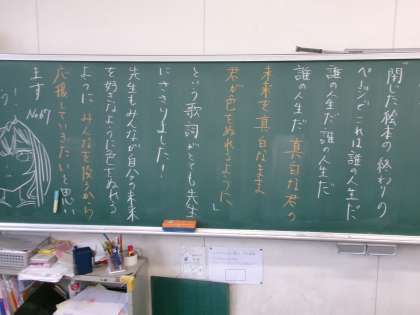 「閉じた絵本の終わりの
ページでこれは誰の人生だ
誰の人生だ誰の人生だ
誰の人生だ 真白な君の
未来を真白なまま
君が色をぬれるように」
という歌詞がとても先生
にささりました!
先生もみんなが自分の未来
を好きなように色をぬれる
ように みんなを後ろから
応援していきたいと思い
ます No.67